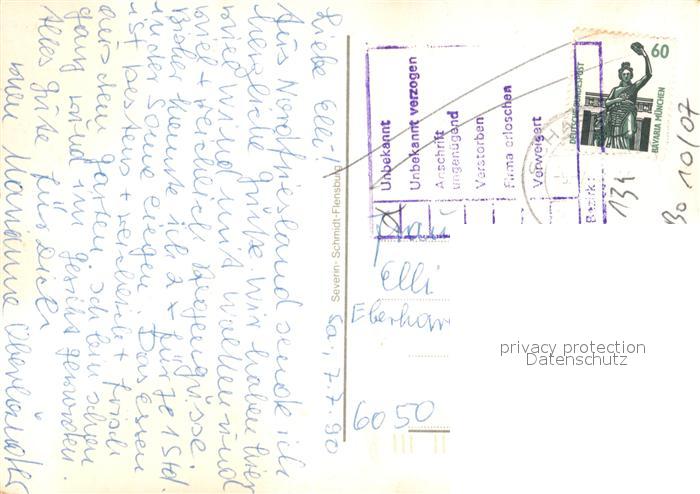 Sa., 7.7.90
Liebe Elli!
Aus Nordfriesland sende ich
herzliche Grüße. Wir haben hier
viel Wind mit Wolken und
viel + reichlich Regengüsse
Bisher konnte ich 2 x für je 1 Std.
in der Sonne liegen. Das Essen
ist bestens + reichlich + frisch
aus dem Garten. Ich bin schon
ganz rund im Gesicht geworden.
Alles Gute für Dich
von Marianne
Severin-Schmidt-Flensburg
Unbekannt
Unbekannt verzogen
Anschrift
ungenügend
Verstorben
Firma erloschen
Verweigert
Bezirk:
134
Bo 10/07
60
DEUTSCHE BUNDESPOST
BAVARIA MÜNCHEN
Frau
Elli
Eberhar
6050
privacy protection
Datenschutz